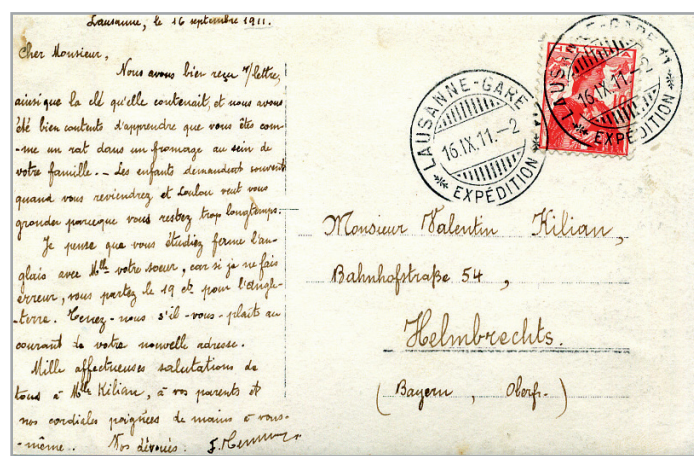 Lausanne, le 16 septembre 1911.
Cher Monsieur,
Nous avons bien reçu v/lettre,
ainsi que la clé qu'elle contenait, et nous avons
été bien contents d'apprendre que vous êtes com-
-me un rat dans un fromage au sein de
votre famille. — Les enfants demandent souvent
quand vous reviendrez et Loulou veut vous
gronder parceque vous restez trop longtemps.
Je pense que vous étudiez ferme l'an-
glais avec Mlle votre soeur, car si je ne fais
erreur, vous partez le 19 ct pour l'Angle-
-terre. Tenez-nous s'il-vous-plaît au
courant de votre nouvelle adresse.
Mille affectueuses salutations de
tous à Mlle Kilian, à vos parents et
nos cordiales poignées de mains à vous-
-même. Vos dévoués:
LAUSANNE-GARE
16.IX.11.-2
EXPÉDITION
LAUSANNE-GARE 11
16.IX.11-2
EXPÉDITION
Monsieur Valentin Kilian,
Bahnhofstraße 54,
Helmbrechts.
(Bayern, Oberfr.)